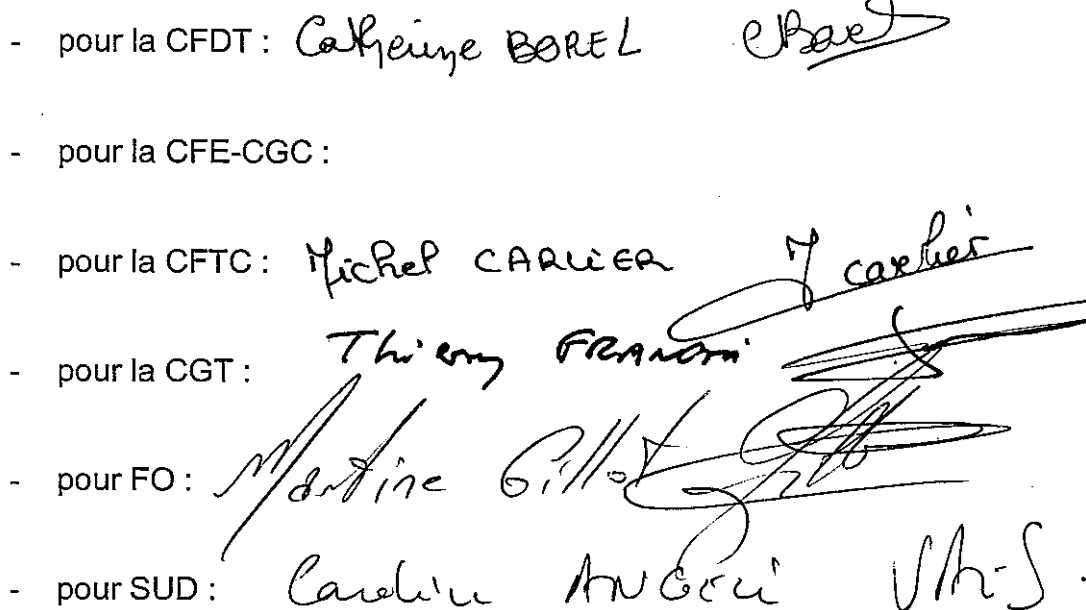 - pour la CFDT : Catherine BOREL CBorel
- pour la CFE-CGC :
- pour la CFTC : Michel CARLIER M carlier
- pour la CGT : Thierry
- pour FO : Martine Gillot
- pour SUD : Caroline ANGELI